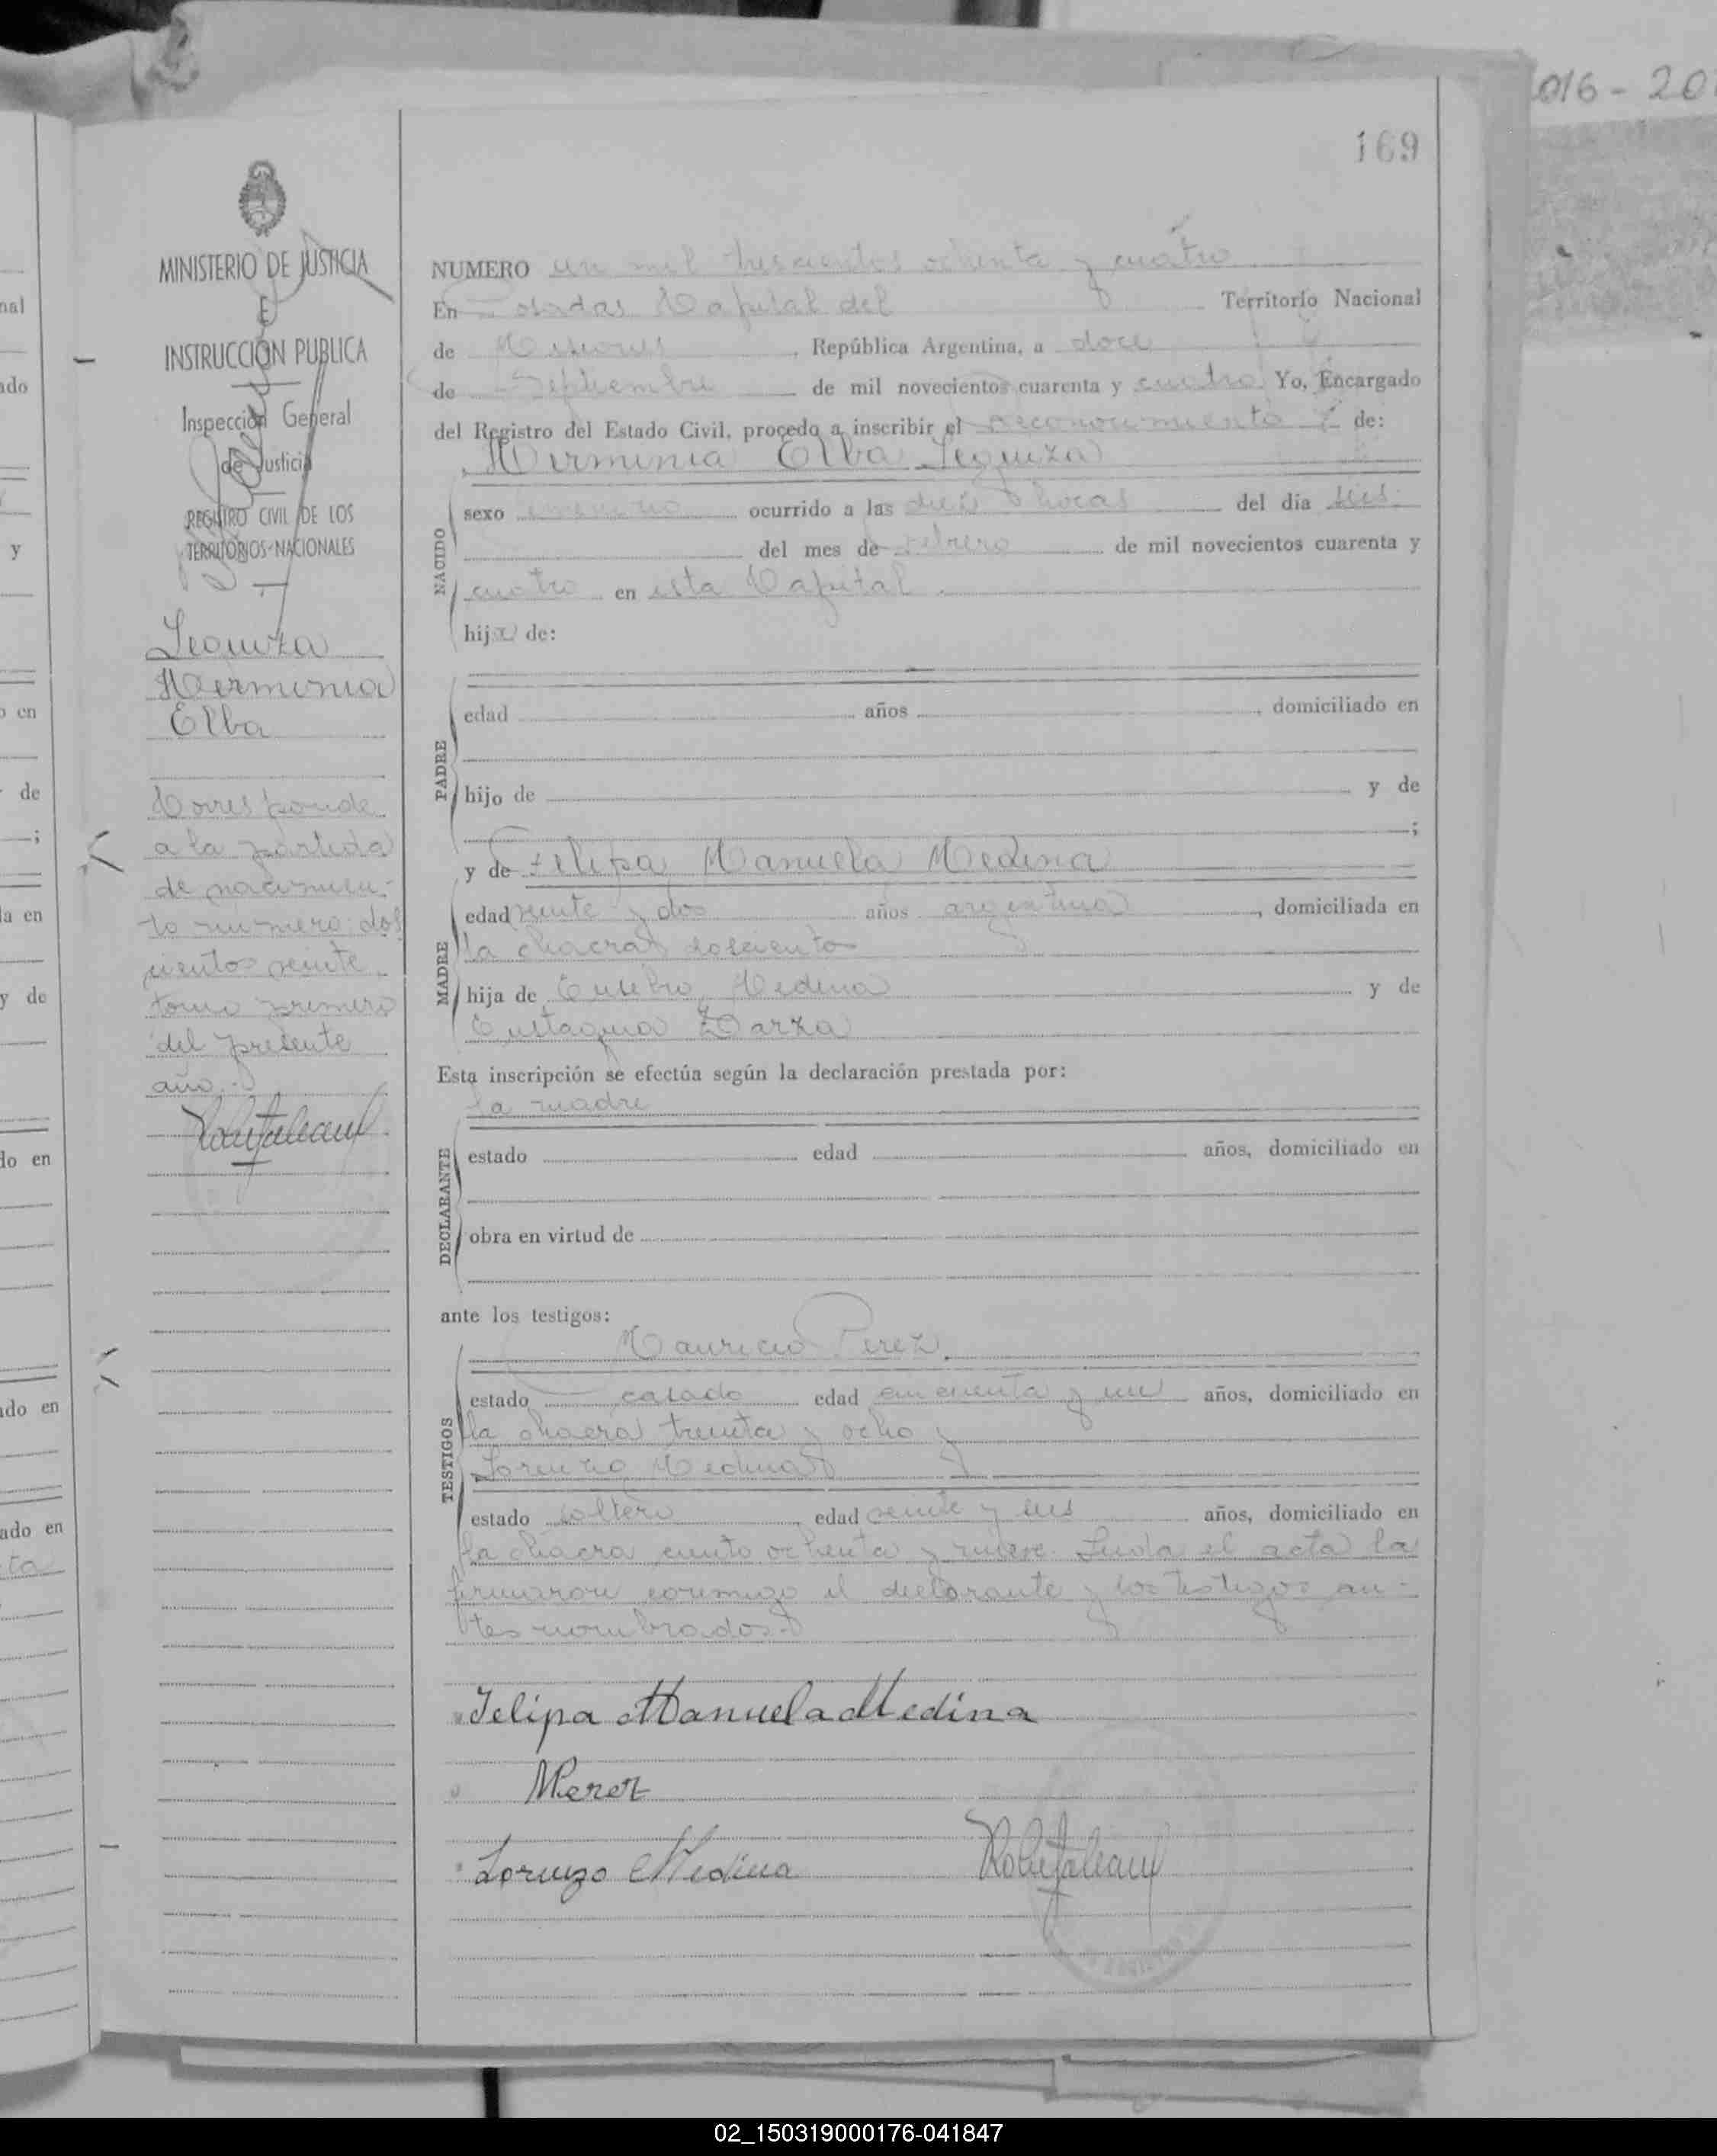 016-20
169
MINISTERIO DE JUSTICIA
E
INSTRUCCIÓN PUBLICA
Inspección General
de Justicia
REGISTRO CIVIL DE LOS
TERRITORIOS NACIONALES
Leguiza
Herminia
Elba
Corresponde
a la partida
de nacimien-
to número dos
cientos veinte
tomo primero
del presente
año.-
NUMERO un mil trescientos ochenta y cuatro
En Posadas Capital del Territorio Nacional
de Misiones, República Argentina, a doce
de Septiembre de mil novecientos cuarenta y cuatro Yo, Encargado
del Registro del Estado Civil, procedo a inscribir el reconocimiento de:
Herminia Elba Leguiza
NACIDO
sexo femenino ocurrido a las diez horas del día seis
del mes de Febrero de mil novecientos cuarenta y
cuatro en esta Capital
hija de:
PADRE
edad años, domiciliado en
hijo de y de
;
y de Felipa Manuela Medina
MADRE
edad veinte y dos años argentina, domiciliada en
la chacra doscientos
hija de Eusebio Medina y de
Eustaquia Barza
Esta inscripción se efectúa según la declaración prestada por:
la madre
DECLARANTE
estado edad años, domiciliado en
obra en virtud de
ante los testigos:
Mauricio Perez
TESTIGOS
estado casado edad cincuenta y un años, domiciliado en
la chacra treinta y ocho y
Lorenzo Medina
estado soltero, edad veinte y seis años, domiciliado en
la chacra ciento ochenta y nueve. Leida el acta la
firmaron conmigo el declarante y los testigos an-
tes nombrados.-
Felipa Manuela Medina
MPerez
Lorenzo Medina
02_150319000176-041847